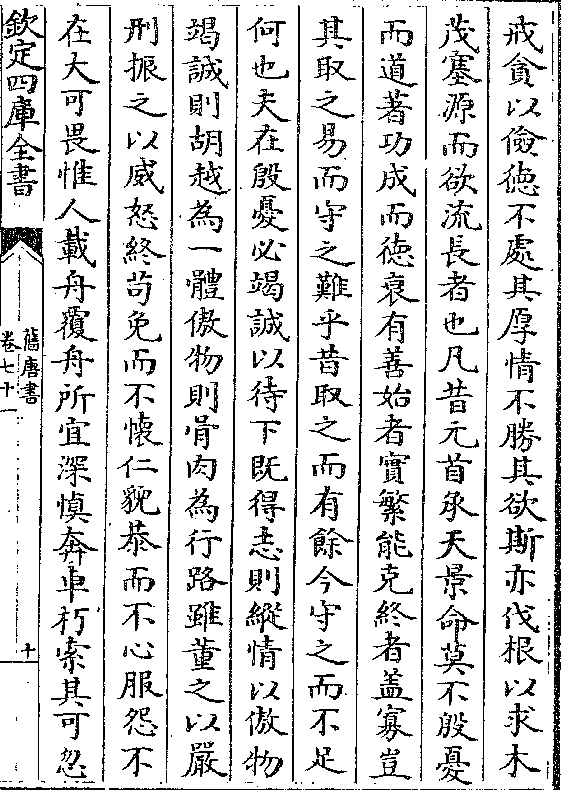 戒貪以儉徳不處其厚情不勝其欲斯亦伐根以求木
茂塞源而欲流長者也凡昔元首承天景命莫不殷憂
而道著功成而徳衰有善始者實繁能克終者盖寡豈
其取之易而守之難乎昔取之而有餘今守之而不足
何也夫在殷憂必竭誠以待下既得志則縱情以傲物
竭誠則胡越為一體傲物則骨肉為行路雖董之以嚴
刑振之以威怒終苟免而不懷仁貌恭而不心服怨不
在大可畏惟人載舟覆舟所宜深慎奔車朽索其可忽
欽定四庫全書
舊唐書
卷七十一
十